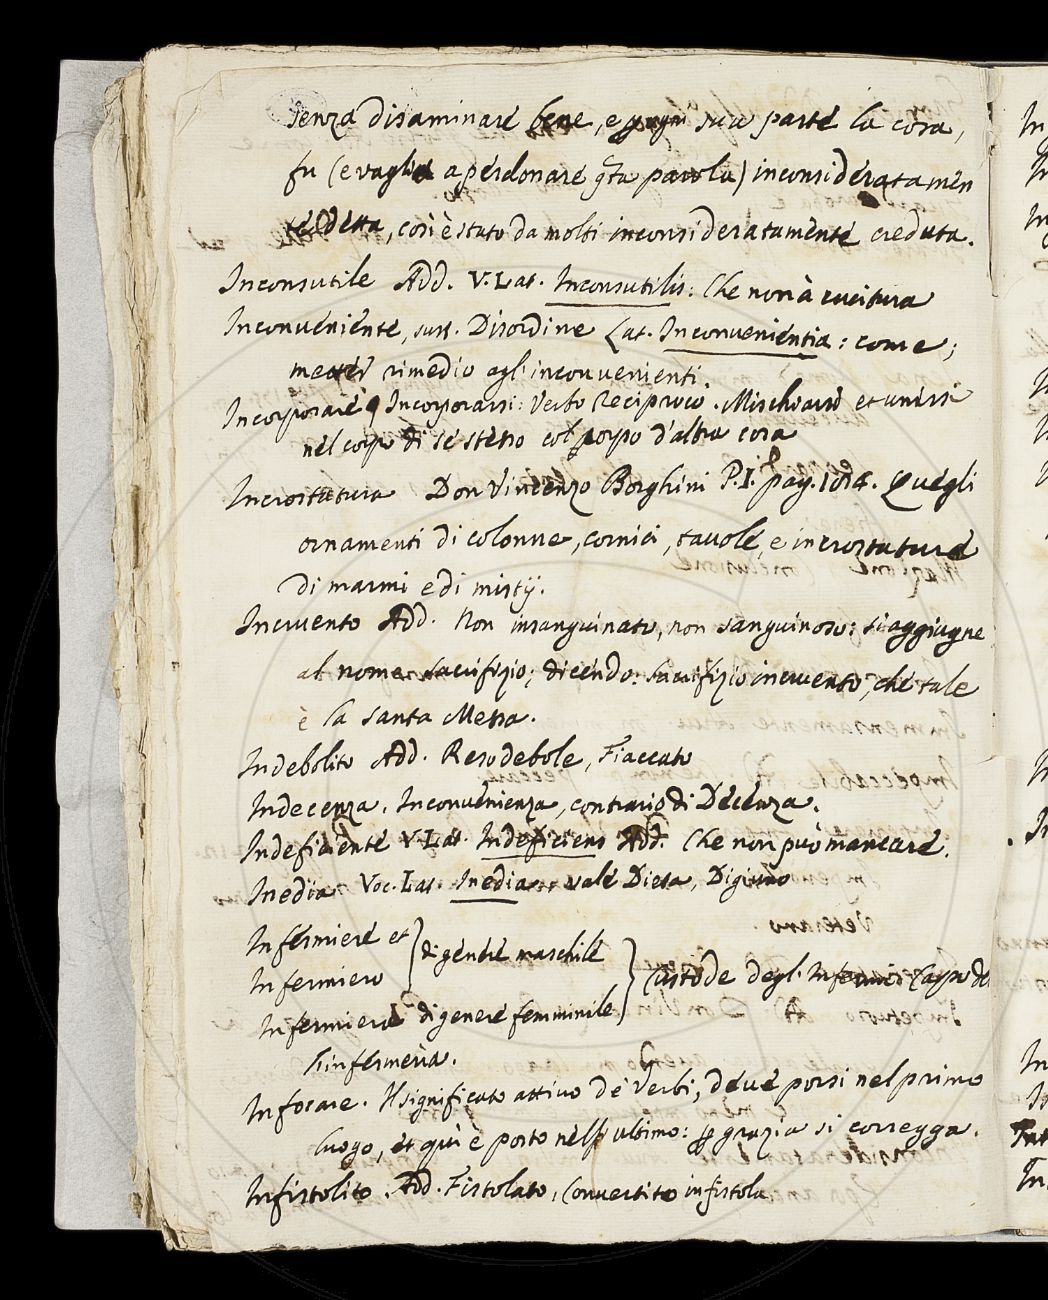 senza disaminare bene, e p ogni sua parte la cosa,
fu (e vaglia a perdonare qta parola) inconsideratamen
te detta, così è stato da molti inconsideratamente creduta.
Inconsutile Add. V. Lat. Inconsutilis: Che non à cucitura
Inconveniente, sust. Disordine Lat. Inconvenientia: come;
metter rimedio agl'inconvenienti.
Incorporare, Incorporarsi: Verbo Reciproco. Mischiarsi et unirsi
nel corpo di se stesso col corpo d'altra cosa
Incrostatura Don Vincenzo Borghini P.I. pag. 104. Quegli
ornamenti di colonne, cornici, tavole, e incrostature
di marmi e di mistij.
Incruento Add. Non insanguinato, non sanguinoso: si aggiugne
al nome sacrifizio; dicendo: sacrifizio incruento, che tale
è la santa Messa.
Indebolito Add. Reso debole, Fiaccato
Indecenza. Inconvenienza, contrario di Decenza.
Indeficiente V. Lat. Indeficiens Add. Che non può mancare.
Inedia Voc. Lat. Inedia vale Dieta, Digiuno
Infermiere et
Infermiero
di genere maschile
Infermiera di genere femminile
Custode degl'Infermi Capo de
l'infermeria.
Infocare. Il significato attivo de' Verbi, deve porsi nel primo
luogo, et quì è posto nell'ultimo: p grazia si corregga.
Infistolito. Add. Fistolato, Convertito in fistola